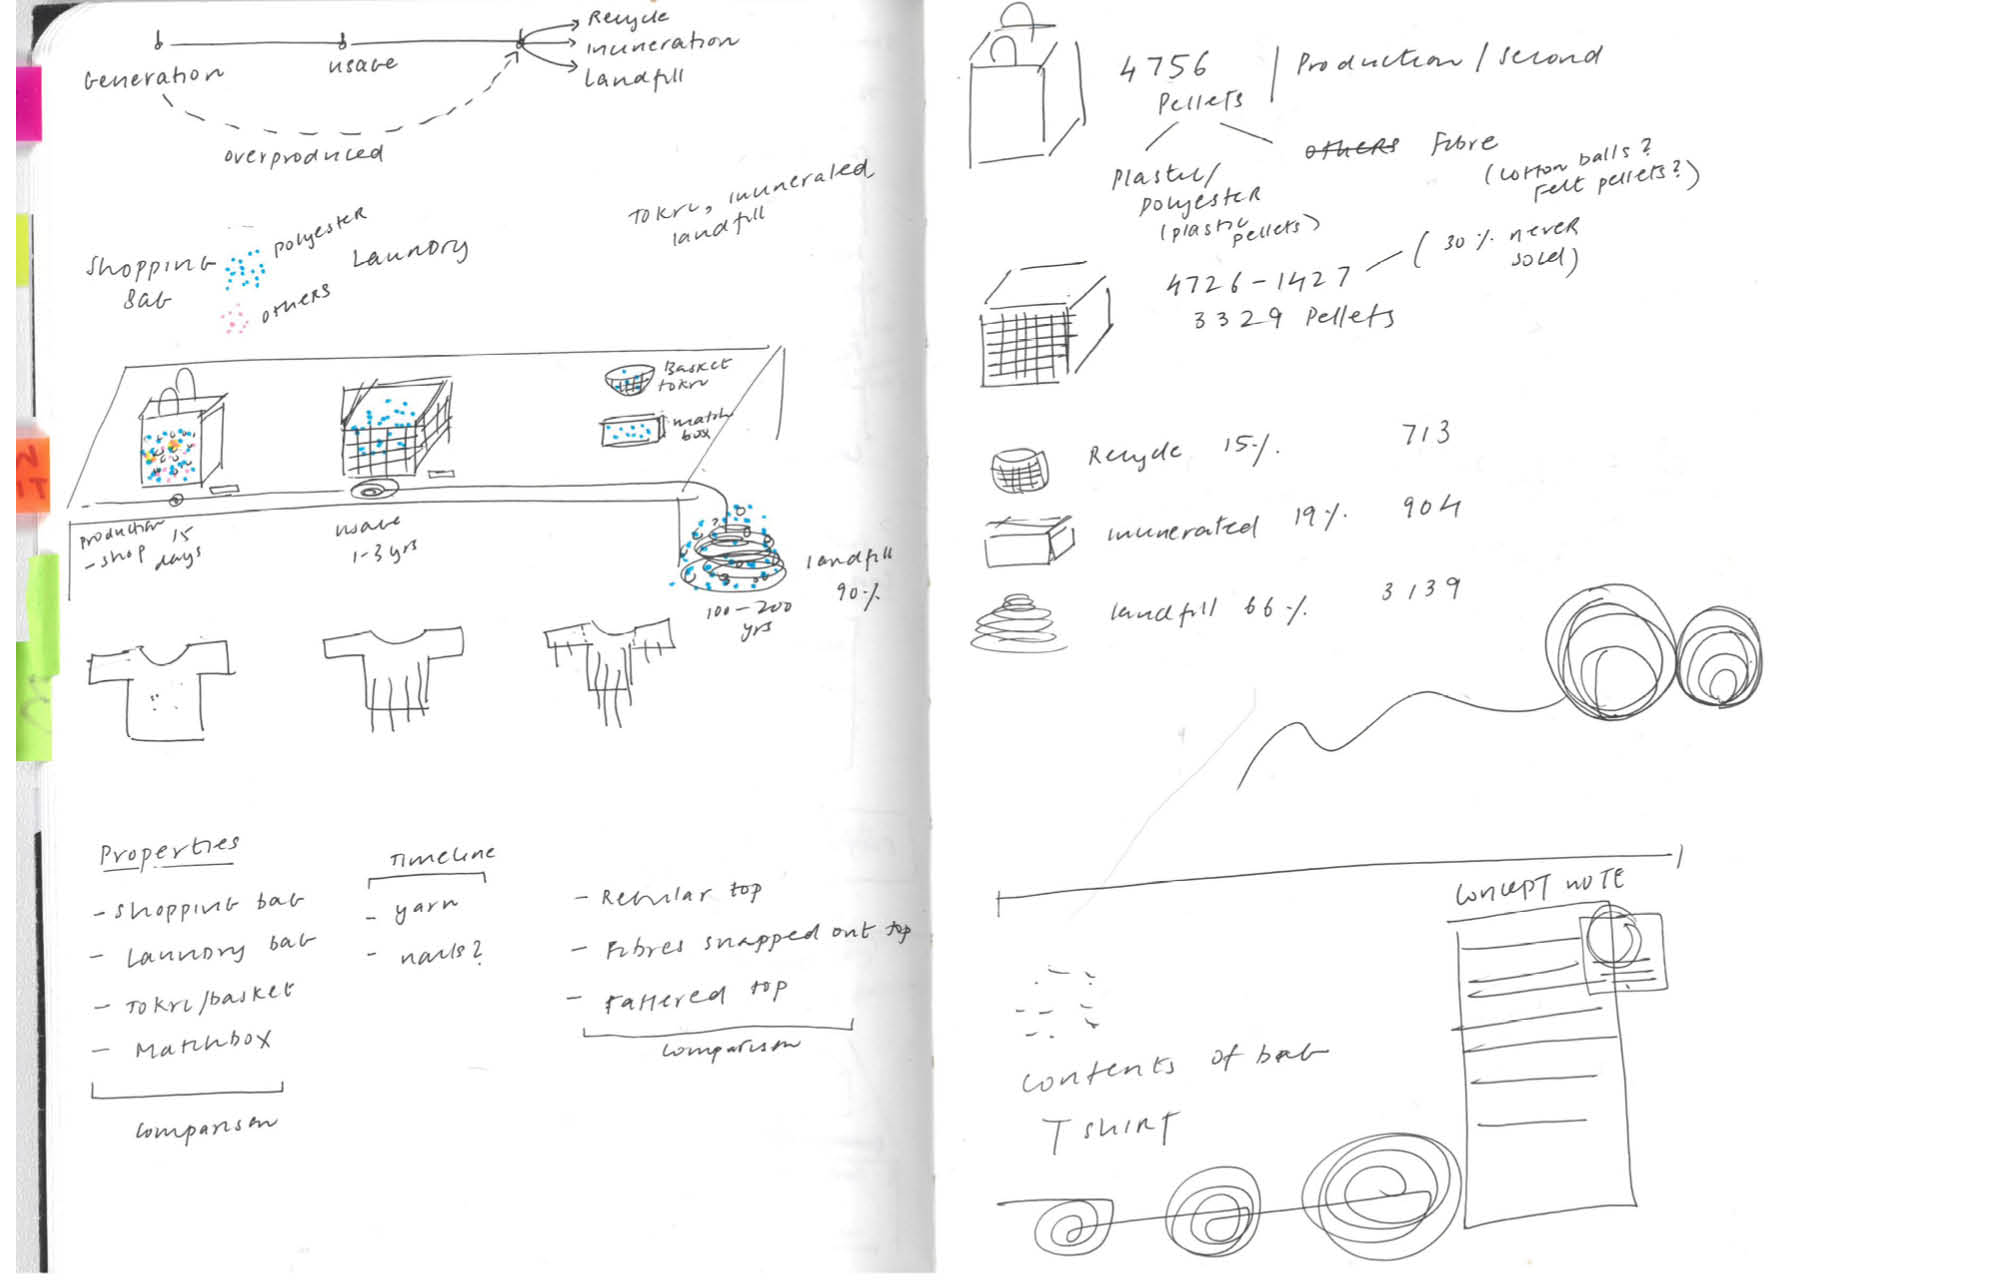 Recycle
Generation
usage
incineration
Landfill
overproduced
Shopping
Bag
polyester
others
Laundry
Tokri, incinerated
landfill
Basket
tokri
match
box
production
- shop
15
days
usage
1-3 yrs
landfill
90%
100-200
yrs
Properties
- shopping bag
- Laundry bag
- Tokri/basket
- Matchbox
comparison
Timeline
- yarn
- nails?
- Regular top
- Fibres snapped out top
- Tattered top
comparison
4756
Pellets
Production / second
Plastic/
polyester
(plastic
pellets)
others Fibre
(cotton balls?
Felt pellets?)
4726-1427
(30% never
sold)
3329 Pellets
Recycle 15% 713
incinerated 19% 904
landfill 66% 3139
CONCEPT NOTE
contents of bag
T shirt